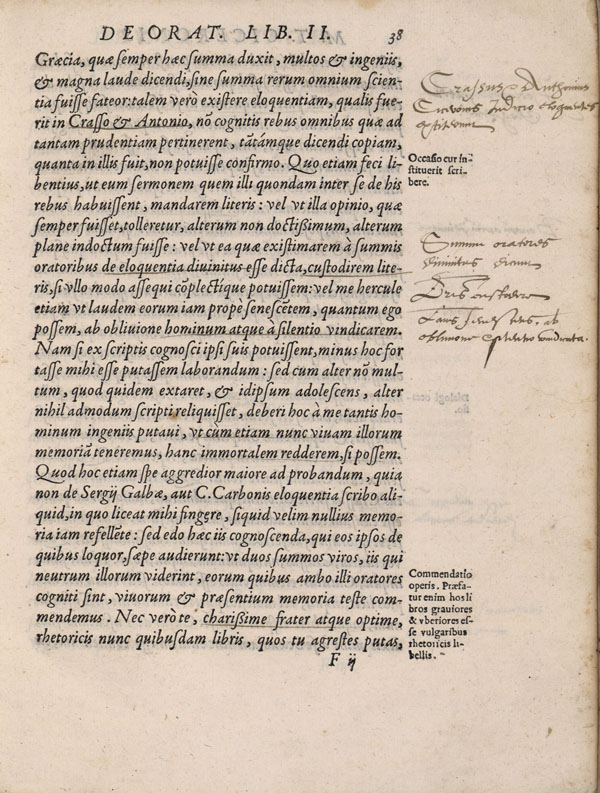 DE ORAT. LIB. II.
38
Græcia, quæ semper hæc summa duxit, multos & ingeniis,
& magna laude dicendi, sine summa rerum omnium scien-
tia fuisse fateor: talem verò existere eloquentiam, qualis fue-
rit in Crasso & Antonio, nō cognitis rebus omnibus quæ ad
tantam prudentiam pertinerent, tātámque dicendi copiam,
quanta in illis fuit, non potuisse confirmo. Quo etiam feci li-
bentius, ut eum sermonem quem illi quondam inter se de his
rebus habuissent, mandarem literis: vel vt illa opinio, quæ
semper fuisset, tolleretur, alterum non doctißimum, alterum
plane indoctum fuisse: vel vt ea quæ existimarem à summis
oratoribus de eloquentia diuinitus esse dicta, custodirem lite-
ris, si vllo modo assequi cōplectique potuissem: vel me hercule
etiam vt laudem eorum iam propè senescētem, quantum ego
possem, ab obliuione hominum atque à silentio vindicarem.
Nam si ex scriptis cognosci ipsi suis potuissent, minus hoc for
tasse mihi esse putassem laborandum: sed cum alter nō mul-
tum, quod quidem extaret, & idipsum adolescens, alter
nihil admodum scripti reliquisset, deberi hoc à me tantis ho-
minum ingeniis putaui, vt cum etiam nunc viuam illorum
memoriā teneremus, hanc immortalem redderem, si possem.
Quod hoc etiam spe aggredior maiore ad probandum, quia
non de Sergij Galbæ, aut C. Carbonis eloquentia scribo ali-
quid, in quo liceat mihi fingere, siquid velim nullius memo-
ria iam refellēte: sed edo hæc iis cognoscenda, qui eos ipsos de
quibus loquor, sæpe audierunt: vt duos summos viros, iis qui
neutrum illorum viderint, eorum quibus ambo illi oratores
cogniti sint, viuorum & præsentium memoria teste com-
mendemus. Nec verò te, charißime frater atque optime,
rhetoricis nunc quibusdam libris, quos tu agrestes putas,
F ij
Crassus & Anthonius
Ciceronis Iudicio eloquentes
extiterunt
Occasio cur in-
stituerit scri-
bere.
Summi oratores
diuinitus
custodire
obliuione
Commendatio
operis. Præfa-
tur enim hos li
bros grauiores
& vberiores es-
se vulgaribus
rhetoricis li-
bellis.